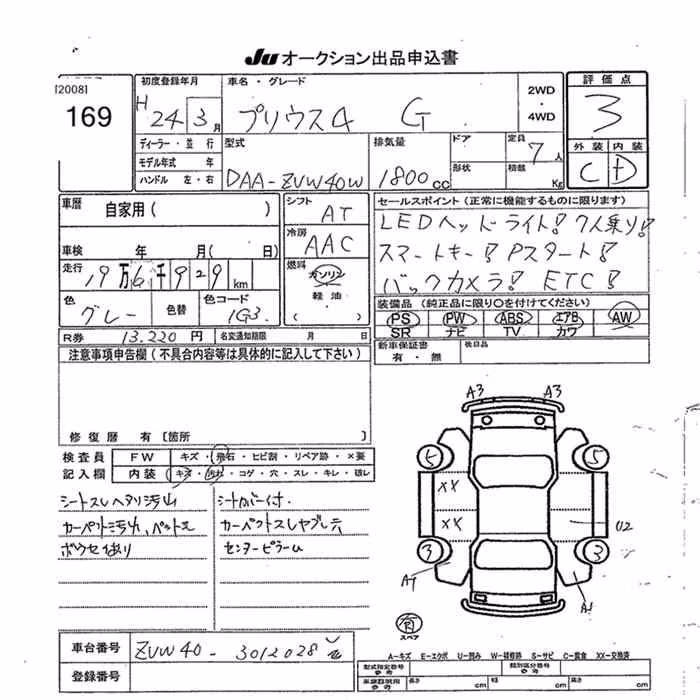 Ju オークション出品申込書
[2008]
169
初度登録年月
H 24 3月
車名・グレード
プリウスα G
2WD
・
4WD
評価点
3
外装 内装
C D
ディーラー・並行
モデル年式 年
ハンドル 左・右
型式
DAA-ZVW40W
排気量
1800cc
ドア
形状
定員
7人
積載
Kg
車歴 自家用( )
車検 年 月( 日)
走行 19万6千929km
色 グレー 色替 色コード 1G3
シフト AT
冷房 AAC
燃料 ガソリン
軽油
( )
セールスポイント(正常に機能するものに限ります)
LEDヘッドライト! 7人乗り!
スマートキー! Pスタート!
バックカメラ! ETC!
装備品(純正品に限り○を付けてください)
PS PW ABS エアB AW
SR ナビ TV カワ
R券 13,220円 名変通知期限 月 日
新車保証書 有・無 後日品
注意事項申告欄(不具合内容等は具体的に記入して下さい)
修復歴 有〔箇所 〕
検査員 FW キズ・飛石・ヒビ割・リペア跡・×要
記入欄 内装 キズ・汚れ・コゲ・穴・スレ・キレ・破レ
シートスレヘタリ汚れ シートカバー付.
カーペット汚れ、ペット毛 カーペットスレヤブレ穴
センターピラーU
A3 A3
5 5
XX
XX U2
3 3
A1 A1
有
スペア
車台番号 ZVW40-3012028
登録番号
A-キズ E-エクボ U-凹み W-補修跡 S-サビ C-腐食 XX-交換済
型式指定番号 参考 類別区分番号 参考
長さ cm 幅 cm 高さ cm